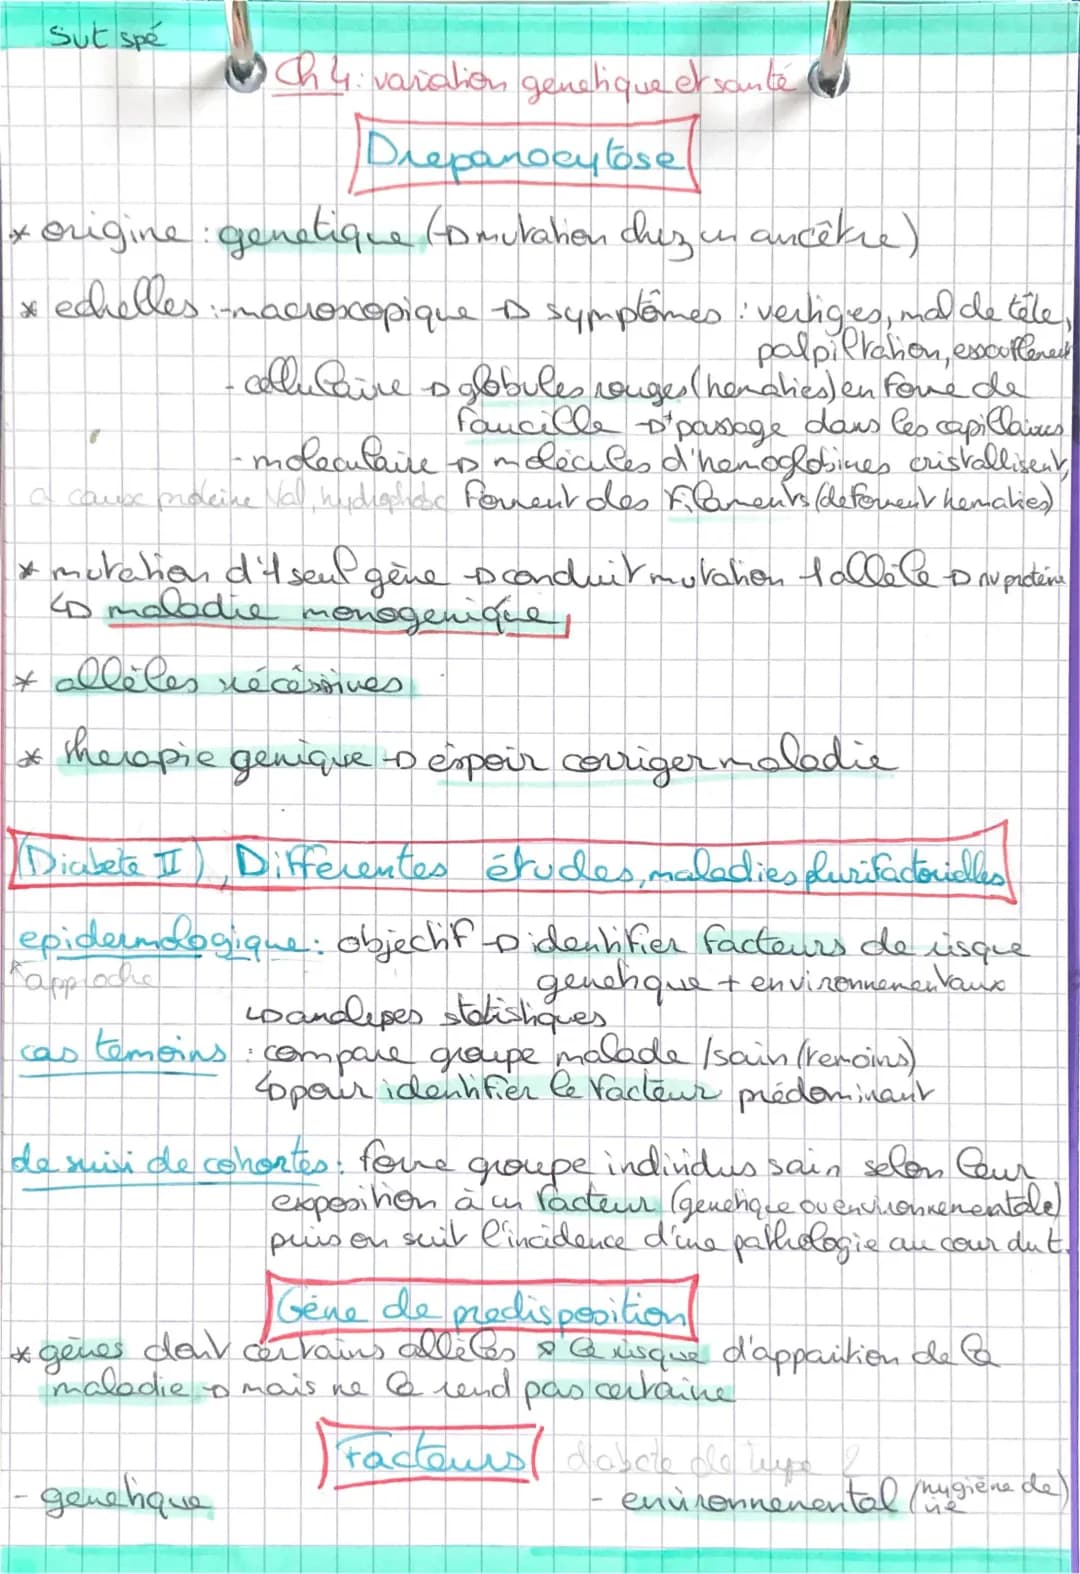 Svt spé
Ch 4: variation genetique et santé
Drepanocytose
* origine : genetique (→ mutation chez un ancêtre)
* echelles : - macroscopique → symptômes : vertiges, mal de tête,
palpiltation, essoufflement
- cellulaire → globules rouges (hematies) en forme de
faucille → passage dans les capillaires
- moleculaire → molécules d'hemoglobines cristallisent,
à cause proteine Val, hydrophobe forment des filaments (deforment hematies)
* mutation d'1 seul gène → conduit mutation 1 allèle → nv proteine
↳ maladie monogenique
* allèles récéssives
* therapie genique → espoir corriger maladie
(Diabete II), Differentes études, maladies plurifactorielles
epidermologique : objectif → identifier facteurs de risque
approche genetique + environnementaux
↳ analyses statistiques
cas temoins : compare groupe malade / sain (temoins)
↳ pour identifier le facteur prédominant
de suivi de cohortes : forme groupe individus sain selon leur
exposition à un facteur (genetique ou environnementale)
puis on suit l'incidence d'une pathologie au cour du t.
Gène de predisposition
* gènes dont certains allèles ↗ le risque d'apparition de la
maladie → mais ne la rend pas certaine
Facteurs diabete de type 2
- genetique
- environnemental (hygiène de vie)